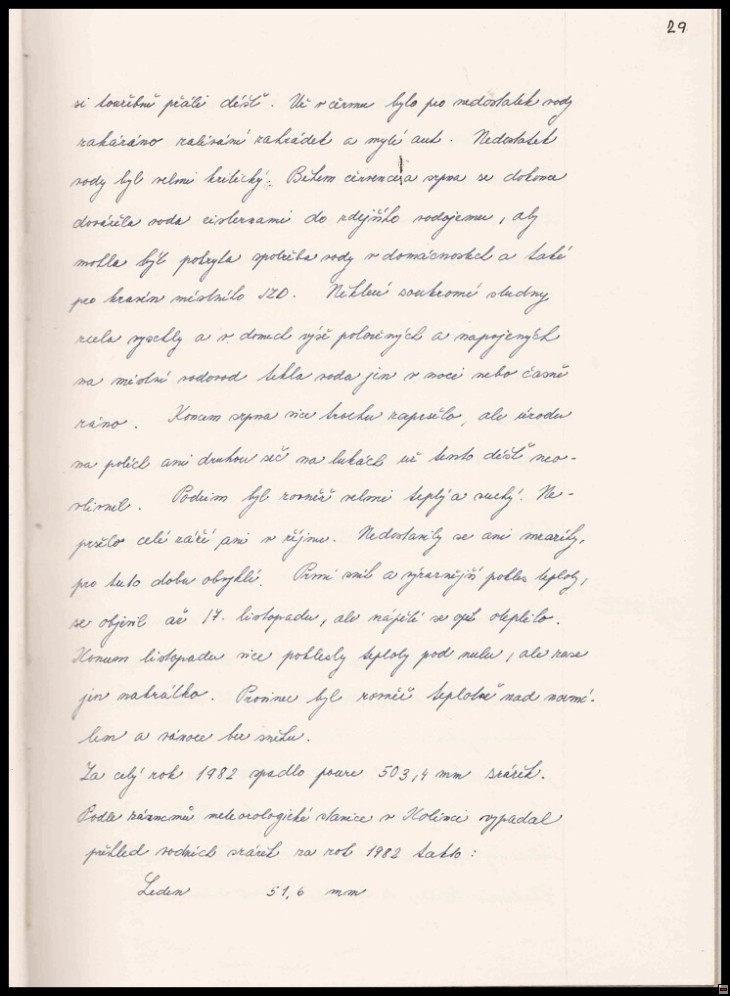 29
si toužebně přáli déšť. Už v červnu bylo pro nedostatek vody
zakázáno zalévání zahrádek a mytí aut. Nedostatek
vody byl velmi kritický. Během července a srpna se dokonce
dovážela voda cisternami do zdejšího vodojemu, aby
mohla být pokryta spotřeba vody v domácnostech a také
pro kravín místního JZD. Některé soukromé studny
zcela vyschly a v domech výše položených a napojených
na místní vodovod tekla voda jen v noci nebo časně
ráno. Koncem srpna sice trochu zapršelo, ale úrodu
na polích ani druhou seč na lukách už tento déšť neo-
vlivnil. Podzim byl rovněž velmi teplý a suchý. Ne-
pršelo celé září ani v říjnu. Nedostavily se ani mrazíky,
pro tuto dobu obvyklé. První sníh a výraznější pokles teploty,
se objevil až 17. listopadu, ale nápětí se opět oteplilo.
Koncem listopadu sice poklesly teploty pod nulu, ale zase
jen nakrátko. Prosinec byl rovněž teplotně nad normá-
lem a vánoce bez sněhu.
Za celý rok 1982 spadlo pouze 503,4 mm srážek.
Podle záznamů meteorologické stanice v Kolinci vypadal
přehled vodních srážek za rok 1982 takto:
Leden 51,6 mm